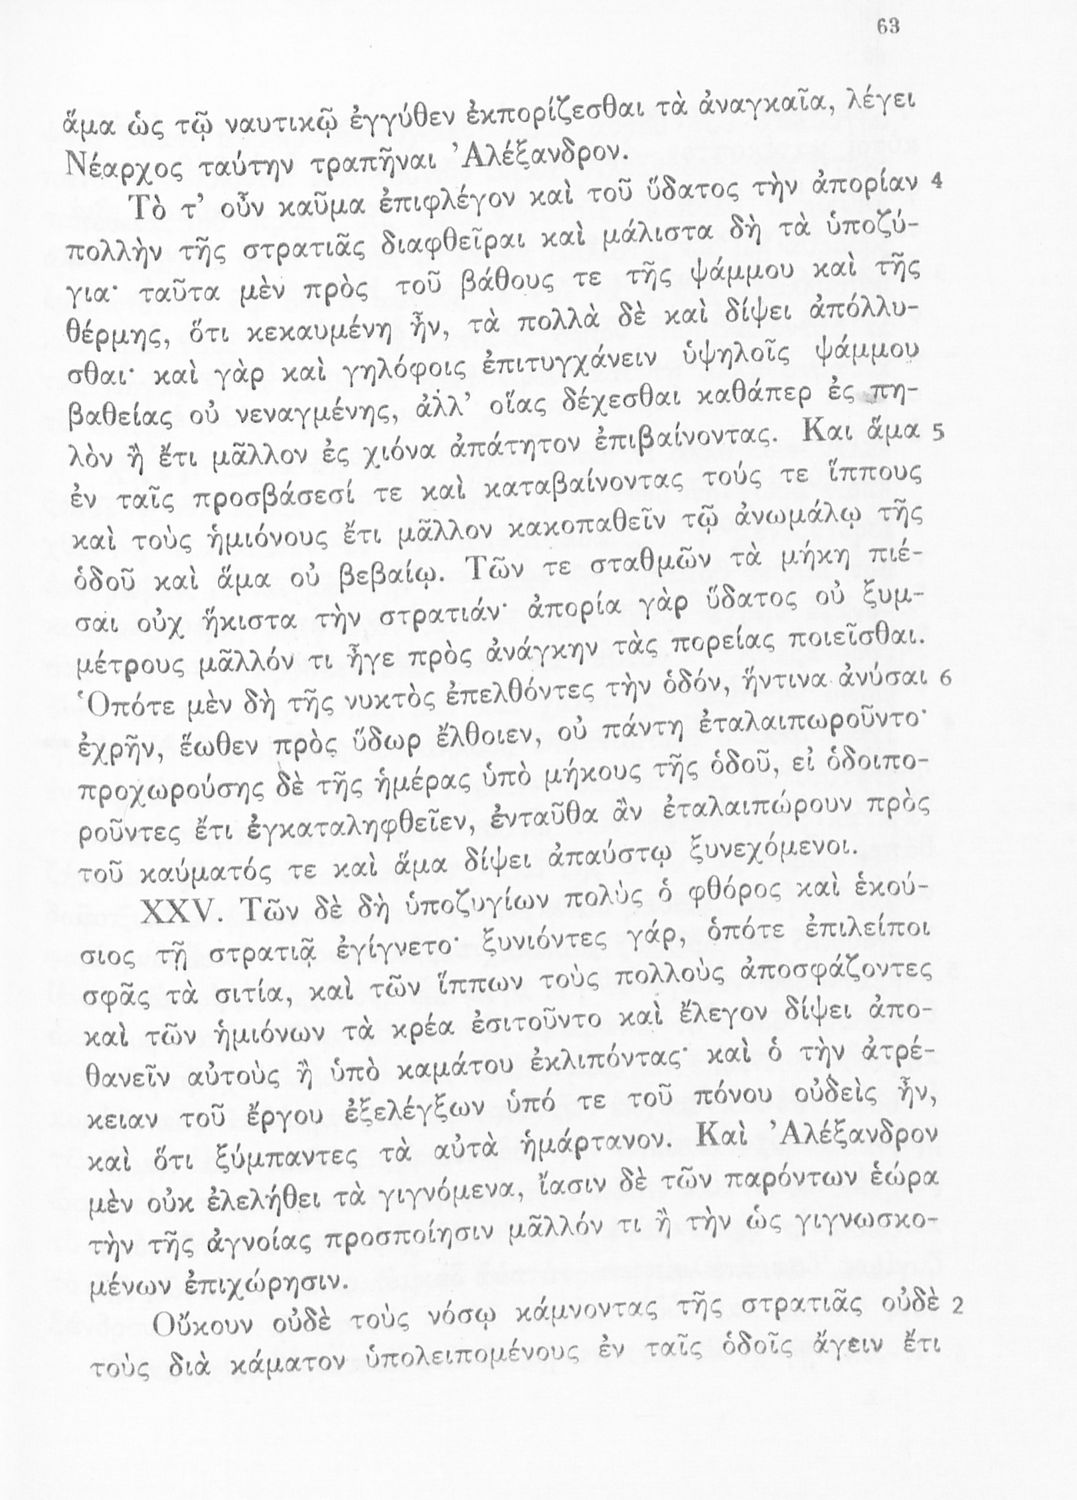 63
ἅμα ὡς τῷ ναυτικῷ ἐγγύθεν ἐκπορίζεσθαι τὰ ἀναγκαῖα, λέγει
Νέαρχος ταύτην τραπῆναι Ἀλέξανδρον.
Τὸ τ’ οὖν καῦμα ἐπιφλέγον καὶ τοῦ ὕδατος τὴν ἀπορίαν 4
πολλὴν τῆς στρατιᾶς διαφθεῖραι καὶ μάλιστα δὴ τὰ ὑποζύ-
για· ταῦτα μὲν πρὸς τοῦ βάθους τε τῆς ψάμμου καὶ τῆς
θέρμης, ὅτι κεκαυμένη ἦν, τὰ πολλὰ δὲ καὶ δίψει ἀπόλλυ-
σθαι· καὶ γὰρ καὶ γηλόφοις ἐπιτυγχάνειν ὑψηλοῖς ψάμμου
βαθείας οὐ νεναγμένης, ἀλλ’ οἵας δέχεσθαι καθάπερ ἐς πη-
λὸν ἢ ἔτι μᾶλλον ἐς χιόνα ἀπάτητον ἐπιβαίνοντας. Και ἅμα 5
ἐν ταῖς προσβάσεσί τε καὶ καταβαίνοντας τούς τε ἵππους
καὶ τοὺς ἡμιόνους ἔτι μᾶλλον κακοπαθεῖν τῷ ἀνωμάλῳ τῆς
ὁδοῦ καὶ ἅμα οὐ βεβαίῳ. Τῶν τε σταθμῶν τὰ μήκη πιέ-
σαι οὐχ ἥκιστα τὴν στρατιάν· ἀπορία γὰρ ὕδατος οὐ ξυμ-
μέτρους μᾶλλόν τι ἦγε πρὸς ἀνάγκην τὰς πορείας ποιεῖσθαι.
Ὁπότε μὲν δὴ τῆς νυκτὸς ἐπελθόντες τὴν ὁδόν, ἥντινα ἀνύσαι 6
ἐχρῆν, ἕωθεν πρὸς ὕδωρ ἔλθοιεν, οὐ πάντη ἐταλαιπωροῦντο·
προχωρούσης δὲ τῆς ἡμέρας ὑπὸ μήκους τῆς ὁδοῦ, εἰ ὁδοιπο-
ροῦντες ἔτι ἐγκαταληφθεῖεν, ἐνταῦθα ἂν ἐταλαιπώρουν πρὸς
τοῦ καύματός τε καὶ ἅμα δίψει ἀπαύστῳ ξυνεχόμενοι.
XXV. Τῶν δὲ δὴ ὑποζυγίων πολὺς ὁ φθόρος καὶ ἑκού-
σιος τῇ στρατιᾷ ἐγίγνετο· ξυνιόντες γάρ, ὁπότε ἐπιλείποι
σφᾶς τὰ σιτία, καὶ τῶν ἵππων τοὺς πολλοὺς ἀποσφάζοντες
καὶ τῶν ἡμιόνων τὰ κρέα ἐσιτοῦντο καὶ ἔλεγον δίψει ἀπο-
θανεῖν αὐτοὺς ἢ ὑπὸ καμάτου ἐκλιπόντας· καὶ ὁ τὴν ἀτρέ-
κειαν τοῦ ἔργου ἐξελέγξων ὑπό τε τοῦ πόνου οὐδεὶς ἦν,
καὶ ὅτι ξύμπαντες τὰ αὐτὰ ἡμάρτανον. Καὶ Ἀλέξανδρον
μὲν οὐκ ἐλελήθει τὰ γιγνόμενα, ἴασιν δὲ τῶν παρόντων ἑώρα
τὴν τῆς ἀγνοίας προσποίησιν μᾶλλόν τι ἢ τὴν ὡς γιγνωσκο-
μένων ἐπιχώρησιν.
Οὔκουν οὐδὲ τοὺς νόσῳ κάμνοντας τῆς στρατιᾶς οὐδὲ 2
τοὺς διὰ κάματον ὑπολειπομένους ἐν ταῖς ὁδοῖς ἄγειν ἔτι